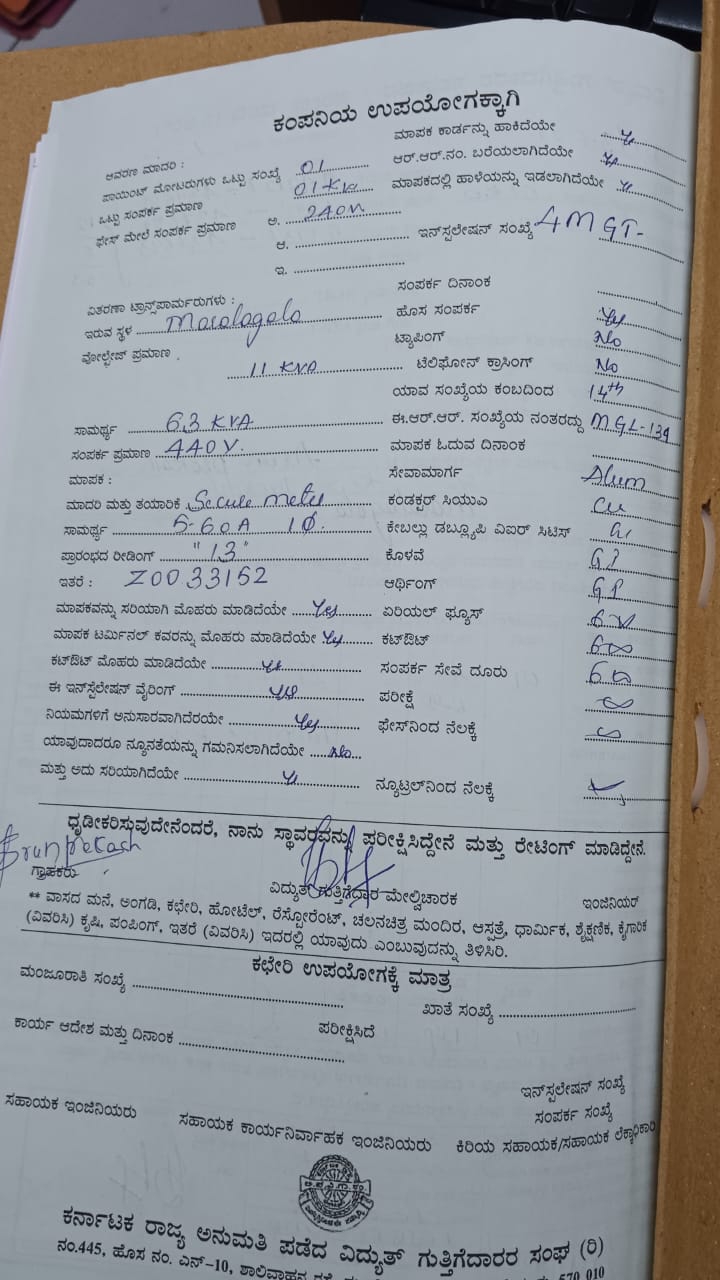 ಕಂಪನಿಯ ಉಪಯೋಗಕ್ಕಾಗಿ
ಆವರಣ ಮಾದರಿ : ಮಾಪಕ ಕಾರ್ಡನ್ನು ಹಾಕಿದೆಯೇ
ಪಾಯಿಂಟ್ ಮೋಟರುಗಳು ಒಟ್ಟು ಸಂಖ್ಯೆ 01 ಆರ್.ಆರ್.ನಂ. ಬರೆಯಲಾಗಿದೆಯೇ
ಒಟ್ಟು ಸಂಪರ್ಕ ಪ್ರಮಾಣ 01 KW ಮಾಪಕದಲ್ಲಿ ಹಾಳೆಯನ್ನು ಇಡಲಾಗಿದೆಯೇ
ಫೇಸ್ ಮೇಲೆ ಸಂಪರ್ಕ ಪ್ರಮಾಣ ಅ. 240V
ಆ. ಇನ್‌ಸ್ಪಲೇಷನ್ ಸಂಖ್ಯೆ 4 MGT-
ಇ.
ಸಂಪರ್ಕ ದಿನಾಂಕ
ವಿತರಣಾ ಟ್ರಾನ್ಸ್‌ಪಾರ್ಮರುಗಳು : ಹೊಸ ಸಂಪರ್ಕ Yes
ಇರುವ ಸ್ಥಳ ಟ್ಯಾಪಿಂಗ್ No
ವೋಲ್ಟೇಜ್ ಪ್ರಮಾಣ 11 KVA ಟೆಲಿಫೋನ್ ಕ್ರಾಸಿಂಗ್ No
ಯಾವ ಸಂಖ್ಯೆಯ ಕಂಬದಿಂದ 14th
ಸಾಮರ್ಥ್ಯ 63 KVA ಈ.ಆರ್.ಆರ್. ಸಂಖ್ಯೆಯ ನಂತರದ್ದು MGL-139
ಸಂಪರ್ಕ ಪ್ರಮಾಣ 440V. ಮಾಪಕ ಓದುವ ದಿನಾಂಕ
ಮಾಪಕ : ಸೇವಾಮಾರ್ಗ Alum
ಮಾದರಿ ಮತ್ತು ತಯಾರಿಕೆ Secure meter ಕಂಡಕ್ಟರ್ ಸಿಯುಎ cu
ಸಾಮರ್ಥ್ಯ 5-60A 1Ø. ಕೇಬಲ್ಲು ಡಬ್ಲ್ಯೂಪಿ ವಿಐರ್ ಸಿಟಿಸ್
ಪ್ರಾರಂಭದ ರೀಡಿಂಗ್ "13" ಕೊಳವೆ GI
ಇತರೆ : Z0033152 ಆರ್ಥಿಂಗ್
ಮಾಪಕವನ್ನು ಸರಿಯಾಗಿ ಮೊಹರು ಮಾಡಿದೆಯೇ Yes ಏರಿಯಲ್ ಫ್ಯೂಸ್
ಮಾಪಕ ಟರ್ಮಿನಲ್ ಕವರನ್ನು ಮೊಹರು ಮಾಡಿದೆಯೇ Yes ಕಟ್‌ಔಟ್
ಕಟ್‌ಔಟ್ ಮೊಹರು ಮಾಡಿದೆಯೇ Yes ಸಂಪರ್ಕ ಸೇವೆ ದೂರು
ಈ ಇನ್‌ಸ್ಪೆಲೇಷನ್ ವೈರಿಂಗ್ Yes ಪರೀಕ್ಷೆ
ನಿಯಮಗಳಿಗೆ ಅನುಸಾರವಾಗಿದೆರಯೇ Yes ಫೇಸ್‌ನಿಂದ ನೆಲಕ್ಕೆ
ಯಾವುದಾದರೂ ನ್ಯೂನತೆಯನ್ನು ಗಮನಿಸಲಾಗಿದೆಯೇ No
ಮತ್ತು ಅದು ಸರಿಯಾಗಿದೆಯೇ ನ್ಯೂಟ್ರಲ್‌ನಿಂದ ನೆಲಕ್ಕೆ
ಧೃಡೀಕರಿಸುವುದೇನೆಂದರೆ, ನಾನು ಸ್ಥಾವರವನ್ನು ಪರೀಕ್ಷಿಸಿದ್ದೇನೆ ಮತ್ತು ರೇಟಿಂಗ್ ಮಾಡಿದ್ದೇನೆ.
ಗ್ರಾಹಕರು ವಿದ್ಯುತ್ ಗುತ್ತಿಗೆದಾರ ಮೇಲ್ವಿಚಾರಕ ಇಂಜಿನಿಯರ್
** ವಾಸದ ಮನೆ, ಅಂಗಡಿ, ಕಛೇರಿ, ಹೋಟೆಲ್, ರೆಸ್ಟೋರೆಂಟ್, ಚಲನಚಿತ್ರ ಮಂದಿರ, ಆಸ್ಪತ್ರೆ, ಧಾರ್ಮಿಕ, ಶೈಕ್ಷಣಿಕ, ಕೈಗಾರಿಕೆ
(ವಿವರಿಸಿ) ಕೃಷಿ, ಪಂಪಿಂಗ್, ಇತರೆ (ವಿವರಿಸಿ) ಇದರಲ್ಲಿ ಯಾವುದು ಎಂಬುವುದನ್ನು ತಿಳಿಸಿರಿ.
ಕಛೇರಿ ಉಪಯೋಗಕ್ಕೆ ಮಾತ್ರ
ಮಂಜೂರಾತಿ ಸಂಖ್ಯೆ ಖಾತೆ ಸಂಖ್ಯೆ
ಕಾರ್ಯ ಆದೇಶ ಮತ್ತು ದಿನಾಂಕ ಪರೀಕ್ಷಿಸಿದೆ
ಇನ್‌ಸ್ಪಲೇಷನ್ ಸಂಖ್ಯೆ
ಸಂಪರ್ಕ ಸಂಖ್ಯೆ
ಸಹಾಯಕ ಇಂಜಿನಿಯರು ಸಹಾಯಕ ಕಾರ್ಯನಿರ್ವಾಹಕ ಇಂಜಿನಿಯರು ಕಿರಿಯ ಸಹಾಯಕ/ಸಹಾಯಕ ಲೆಕ್ಕಾಧಿಕಾರಿ
ಕರ್ನಾಟಕ ರಾಜ್ಯ ಅನುಮತಿ ಪಡೆದ ವಿದ್ಯುತ್ ಗುತ್ತಿಗೆದಾರರ ಸಂಘ (ರಿ)
ನಂ.445, ಹೊಸ ನಂ. ಎನ್-10, ಶಾಲಿವಾಹನ 570 010